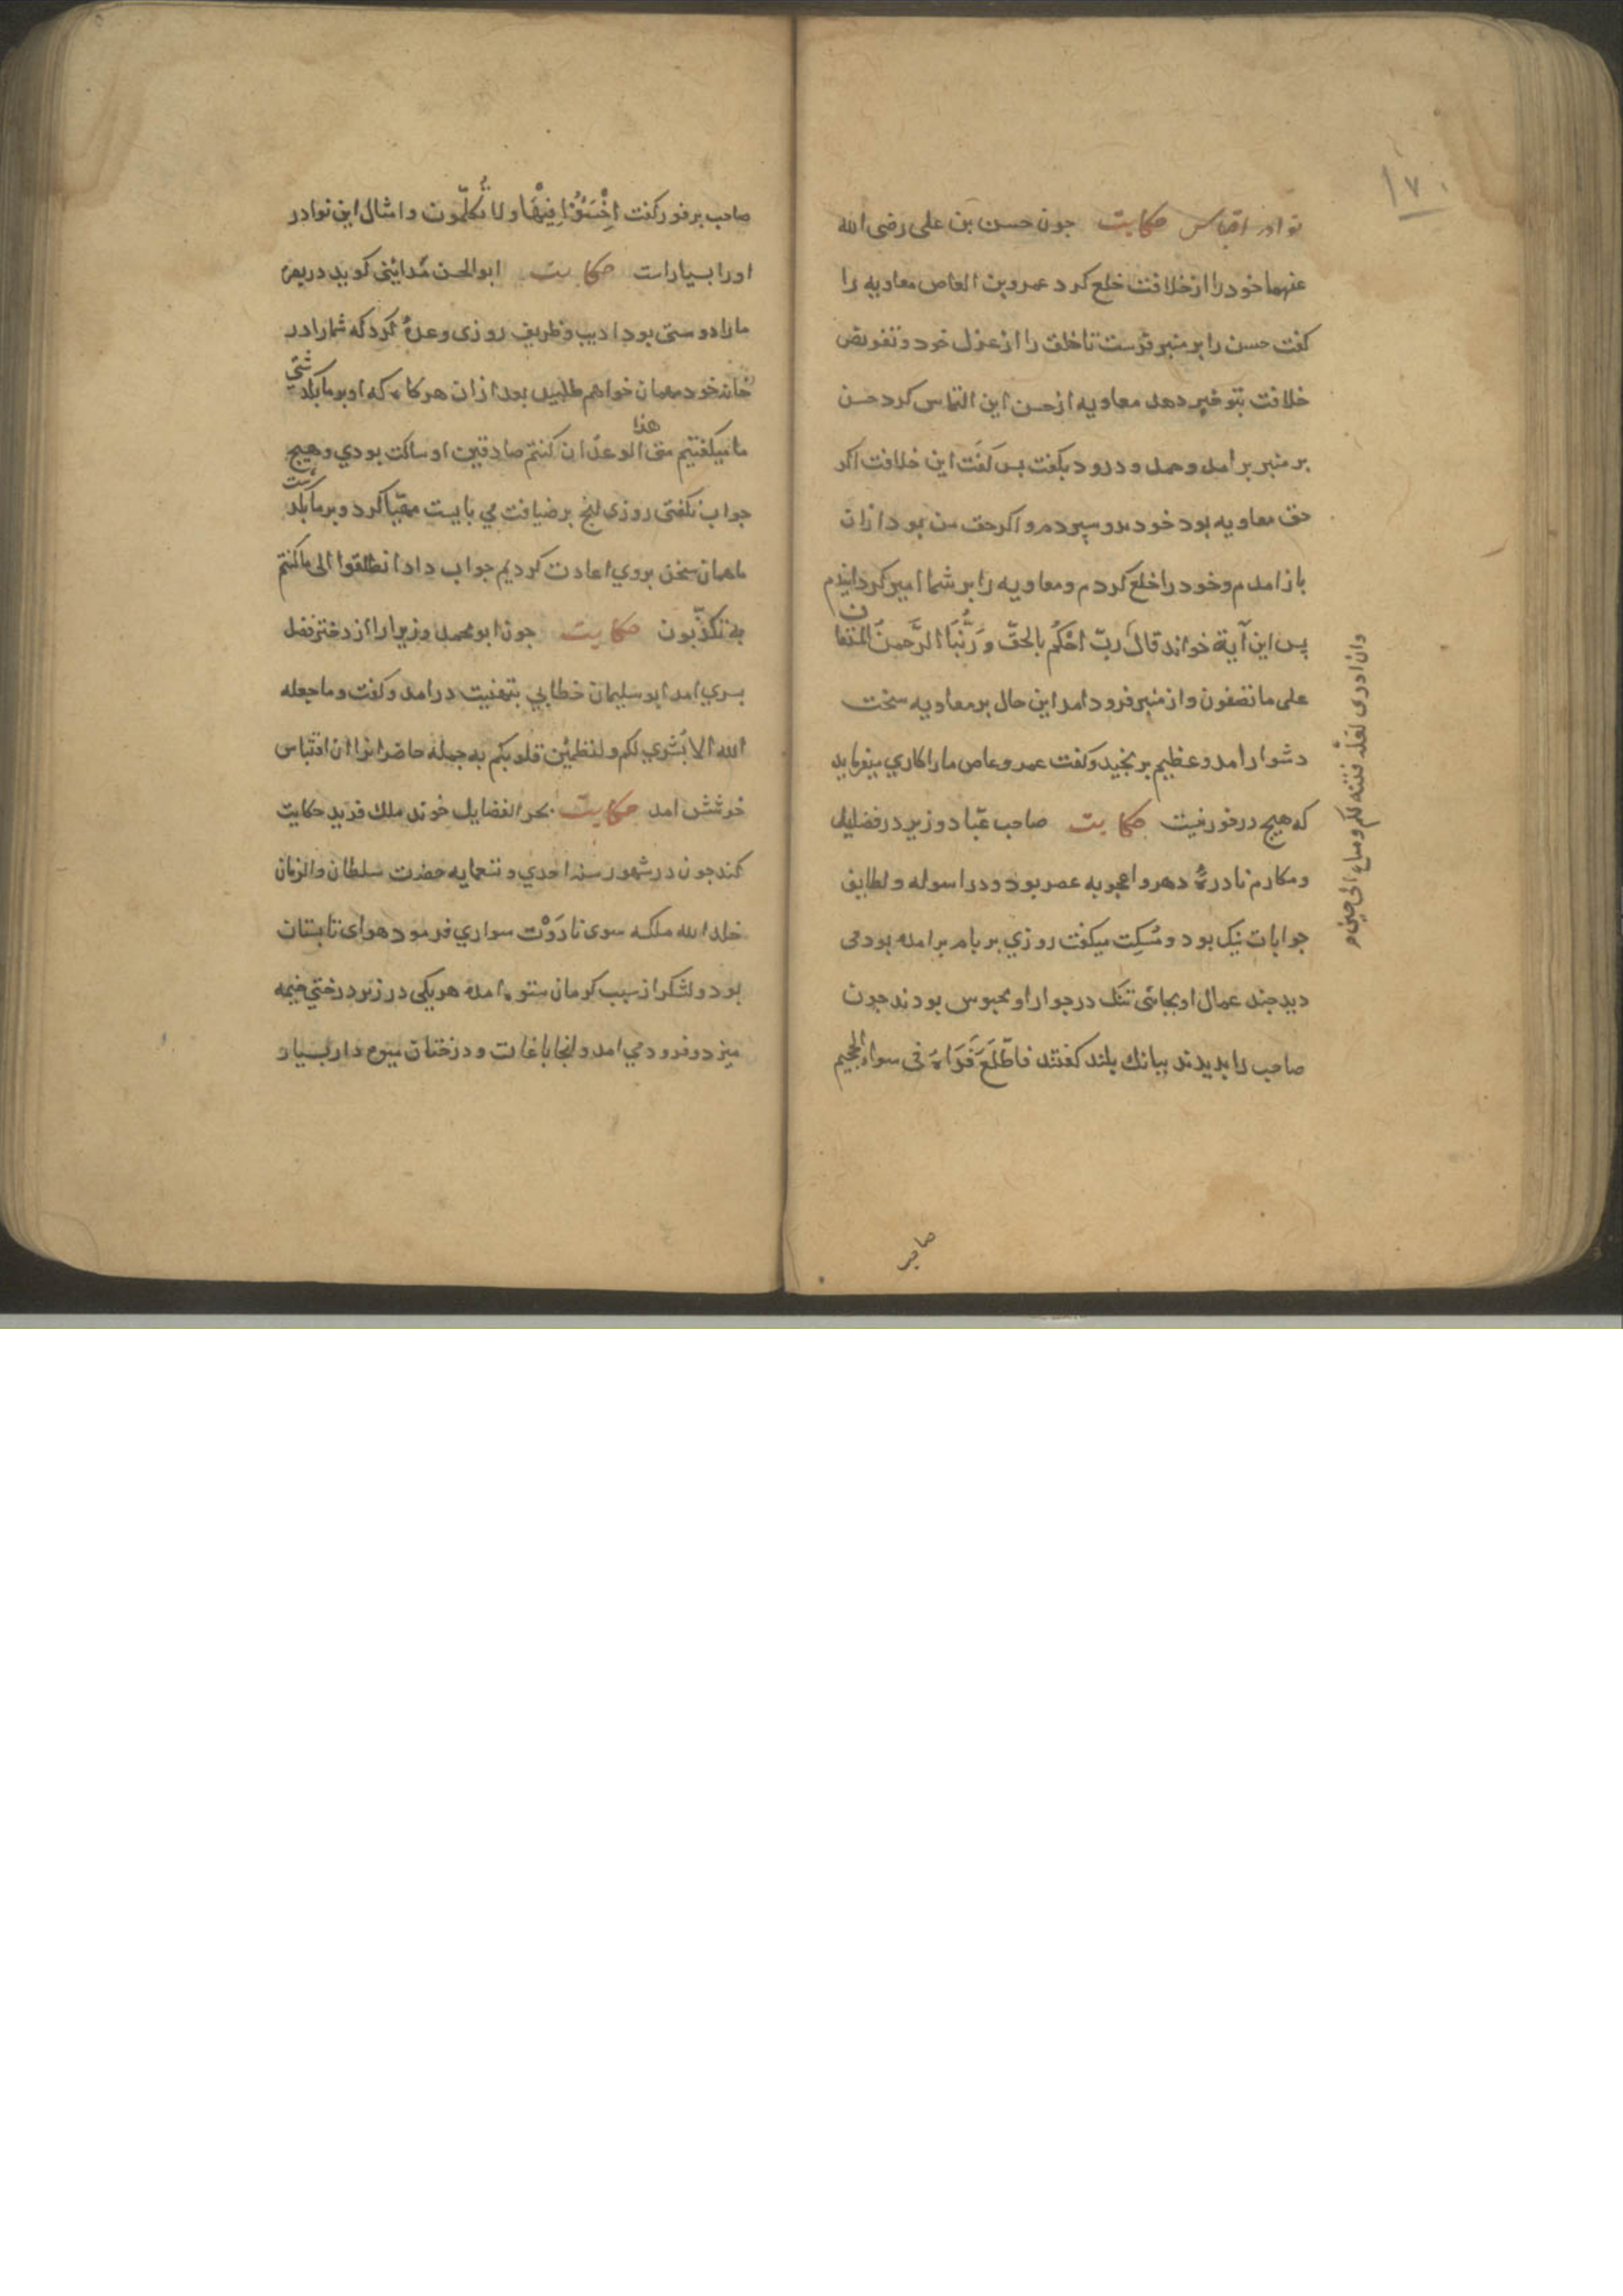 ١٧٠
نوادر اقتباس حکایت جون حسن بن علی رضی الله
عنهما خود را از خلافت خلع کرد عمرو بن العاص معاویه را
کفت حسن را بر منبر فرست تا خلق را از عزل خود و تفویض
خلافت بتو خبر دهد معاویه از حسن این التماس کرد حسن
بر منبر بر امد و حمد و درود بکفت بس کفت این خلافت اکر
حق معاویه بود خود بدو سپردم و اکر حق من بود ازان
باز امدم و خود را خلع کردم و معاویه را بر شما امیر کردانیدم
پس این آیة خواند قالَ ربّ احْکُم بالحقّ وَ رَبُّنَا الرَّحمنُ المستعان
علی ما تصفون و از منبر فرود امد این حال بر معاویه سخت
دشوار امد و عظیم برنجید و کفت عمرو عاص ما را کاري میفرماید
که هیچ در خور نیست حکایت صاحب عبّاد وزیر در فضایل
و مکارم نادرهٔ دهر و اعجوبه عصر بود و در اسوله و لطایف
جوابات نیک بود و مُسکِت میکفت روزي بر بام بر امده بود می
دید جند عمال او بجائی تنک در جوار او محبوس بودند جون
صاحب را بدیدند ببانك بلند کفتند فاطّلَعَ فَرَاهُ فی سواء الجحیم
وان ادری لعَلّه فتنه لکم ومتاع الی حین
صاحب
صاحب بر فور کفت اِخْسَئُوْا فِیْهَا ولا تُکلّمون و امثال این نوادر
اورا بسیار است حکایت ابوالحسن مَدایِنی کوید در بصره
ما را دوستی بود ادیب و ظریف روزی وعدهٔ کرد که شما را در
خانه خود مهمان خواهم طلبید بعد ازان هرکاه که او بر ما بکذشتی
ما میکفتیم متی هذا الوعد ان کنتم صادقین او ساکت بودي و هیچ
جواب نکفتی روزی انج بر ضیافت می بایست مهیّا کرد و بر ما بکذشت
ما همان سخن بروي اعادت کردیم جواب داد انطلقوا الی ما کنتم
به تکذّبون حکایت جون ابو محمد وزیر را از دختر فضل
بسري امد ابو سلیمان خطابي بتهنیت در امد و کفت و ما جعله
الله الا بُشري لکم ولتطمئن قلوبکم به جمله حاضرانرا ان اقتباس
خوشش امد حکایت بحر الفضایل خوند ملك فرید حکایت
کند جون در شهور سنه احدي و تسعمایه حضرت سلطان والزمان
خلد الله ملکه سوی نادَوْت سواري فرمود هوای تابستان
بود و لشکر از سبب کرمان ستوه امده هر یکی در زیر درختي خیمه
میزد و فرود مي امد و انجا باغات و درختان میوه دار بسیار